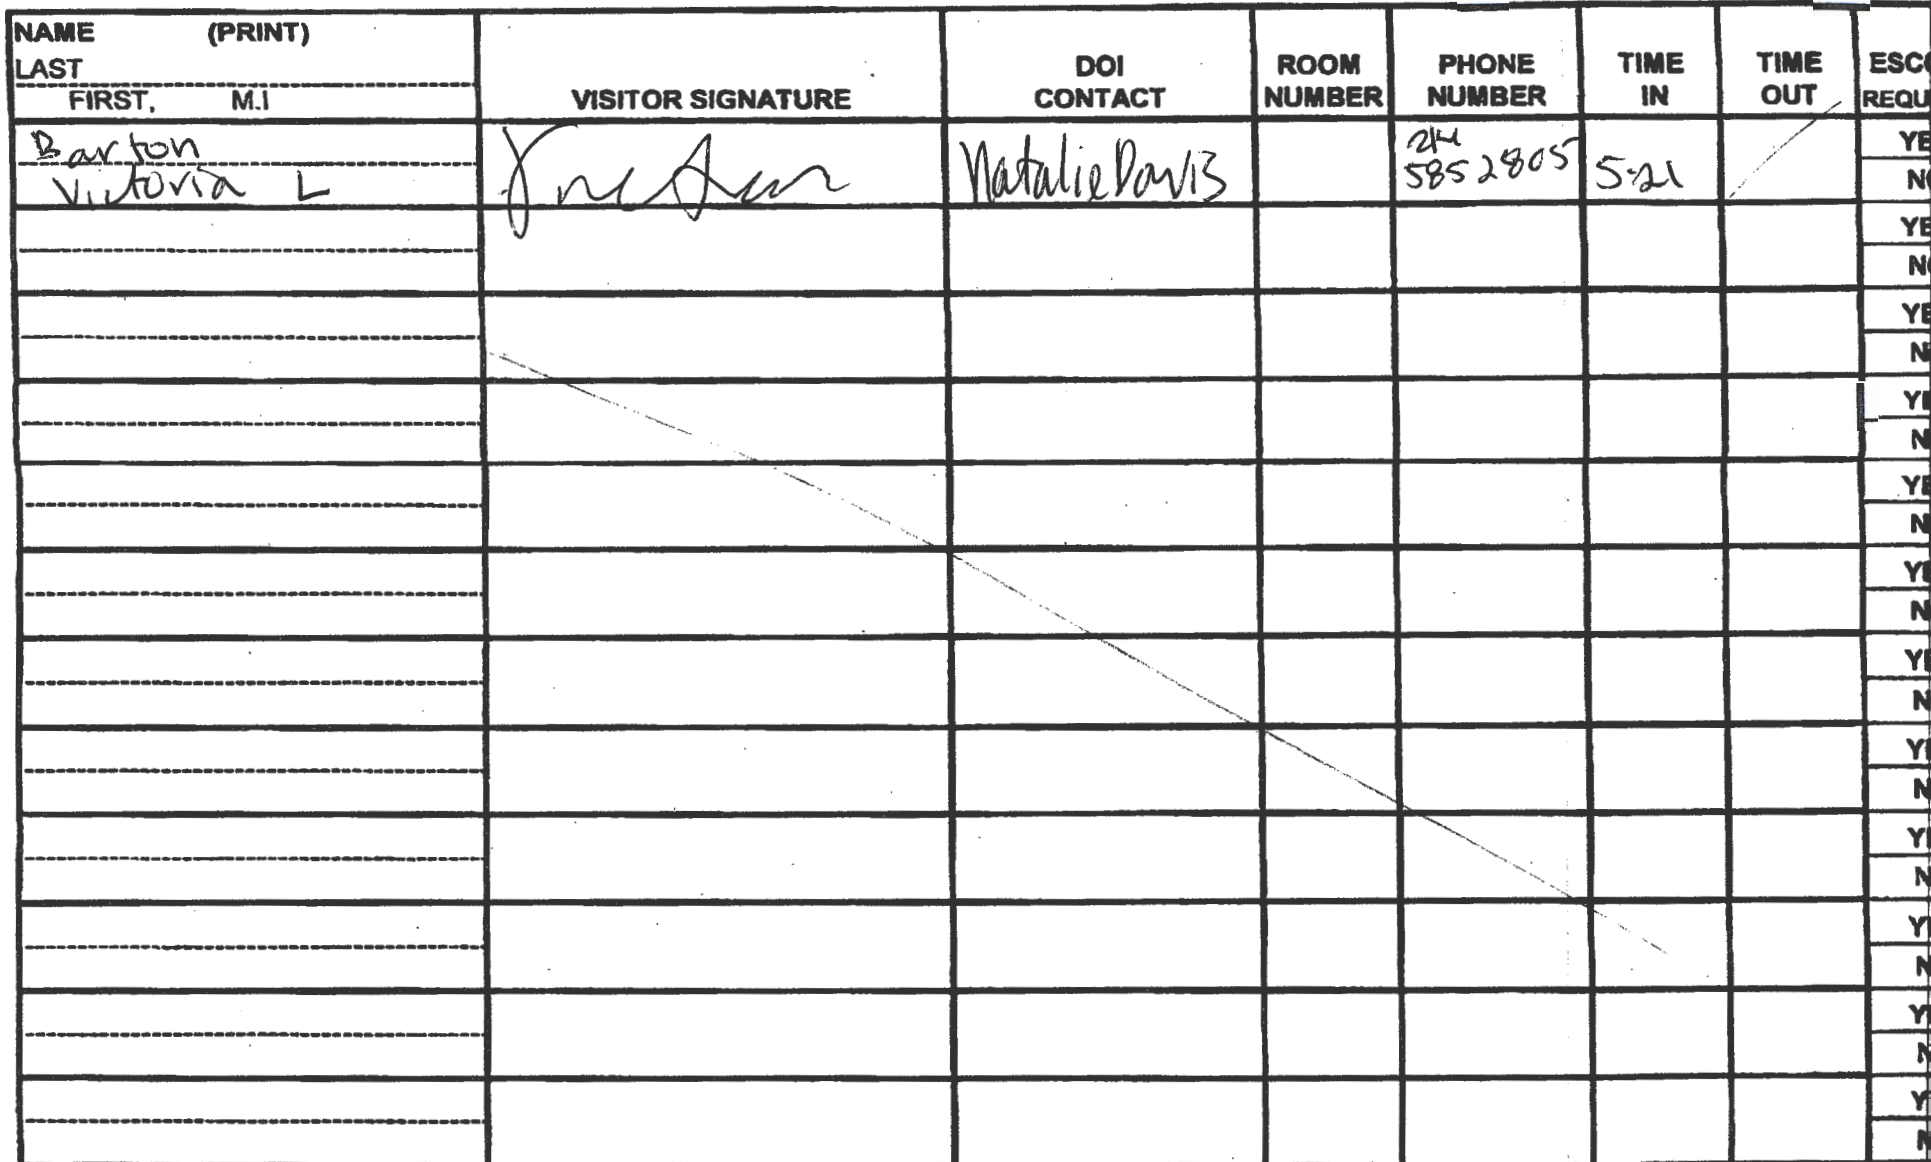 NAME (PRINT)
LAST
FIRST, M.I
VISITOR SIGNATURE
DOI
CONTACT
ROOM
NUMBER
PHONE
NUMBER
TIME
IN
TIME
OUT
ESCO
REQU
Barton
Victoria L
Natalie Davis
214
585 2805
5:21
YE
NO
YE
NO
YE
N
YE
N
YE
N
YE
N
YE
N
YE
N
YE
N
Y
N
Y
N
Y
N